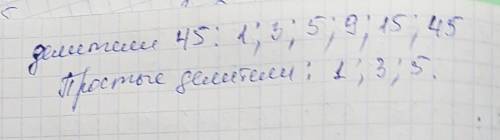 делители 45: 1; 3; 5; 9; 15; 45
Простые делители: 1; 3; 5.